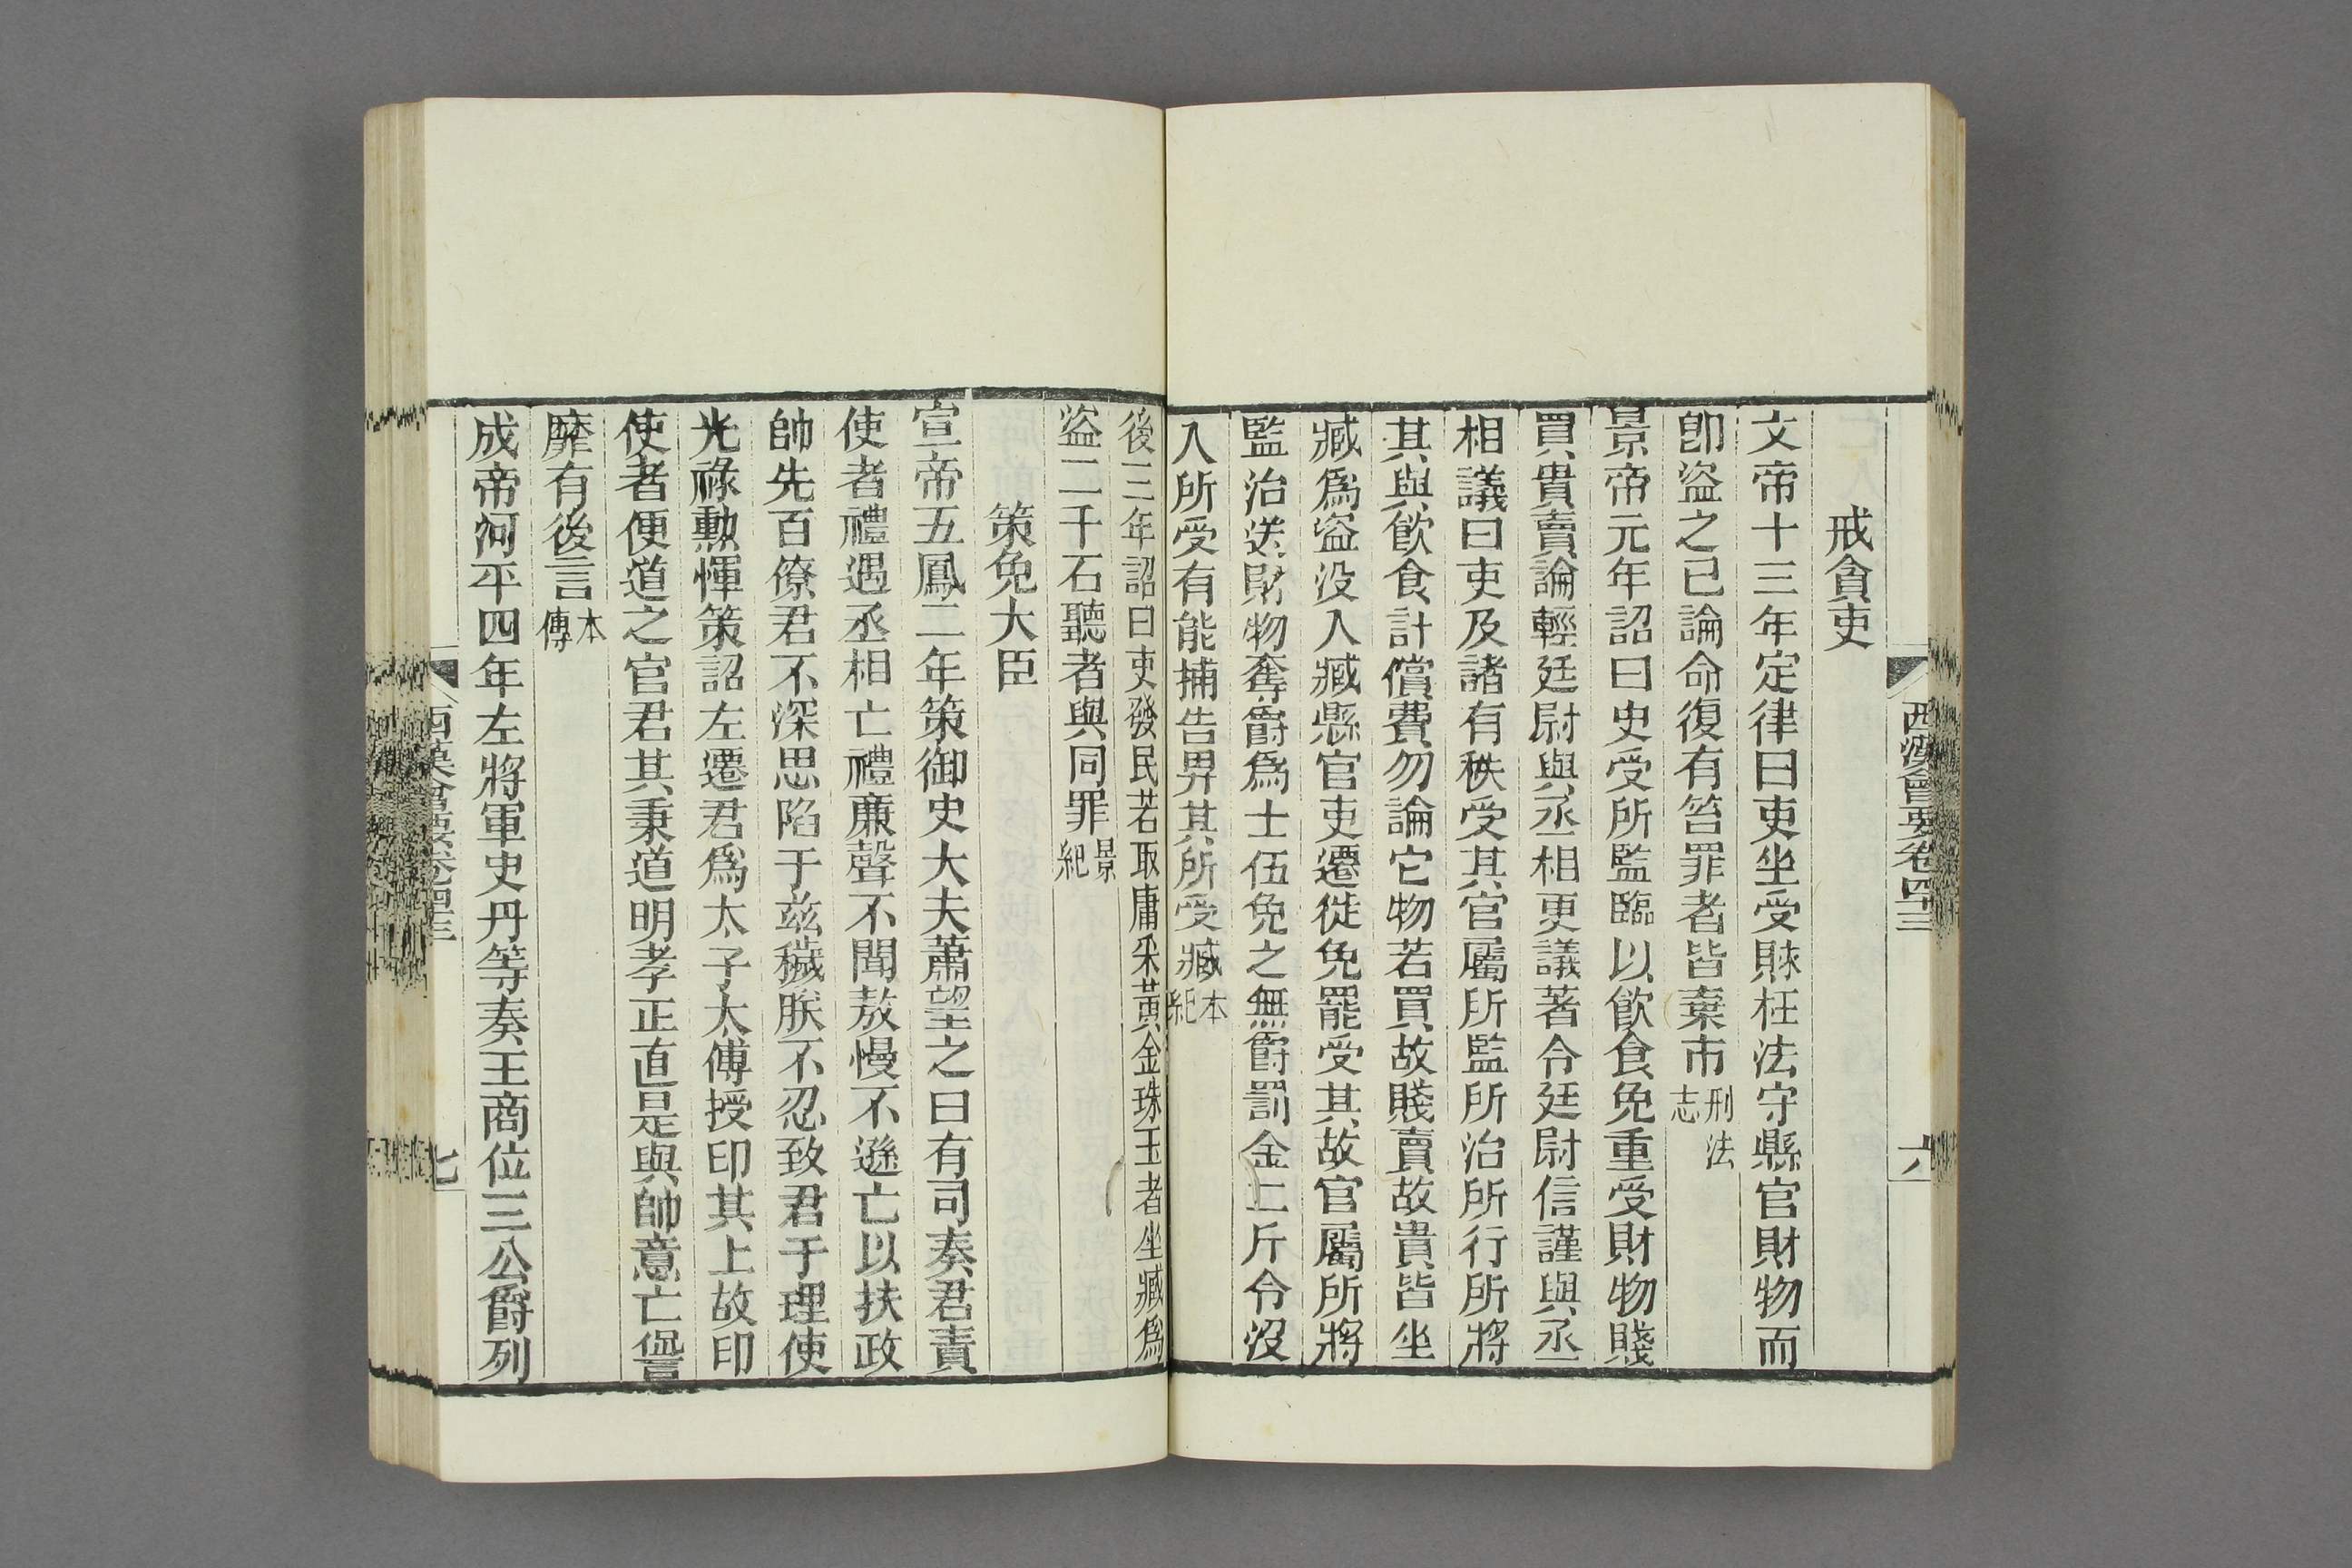 西漢會要卷四十三
六
戒貪吏
文帝十三年定律曰吏坐受賕枉法守縣官財物而
卽盜之已論命復有笞罪者皆棄市刑法志
景帝元年詔曰史受所監臨以飮食免重受財物賤
買貴賣論輕廷尉與丞相更議著令廷尉信謹與丞
相議曰吏及諸有秩受其官屬所監所治所行所將
其與飮食計償費勿論它物若買故賤賣故貴皆坐
臧爲盜没入臧縣官吏遷徙免罷受其故官屬所將
監治送財物奪爵爲士伍免之無爵罰金二斤令没
入所受有能捕告畀其所受臧本紀
後三年詔曰吏發民若取庸采黃金珠玉者坐臧爲
盜二千石聽者與同罪景紀
策免大臣
宣帝五鳳二年策御史大夫蕭望之曰有司奏君責
使者禮遇丞相亡禮廉聲不聞敖慢不遜亡以扶政
帥先百僚君不深思陷于兹穢朕不忍致君于理使
光祿勳惲策詔左遷君爲太子太傅授印其上故印
使者便道之官君其秉道明孝正直是與帥意亡諐
靡有後言本傳
成帝河平四年左將軍史丹等奏王商位三公爵列
西漢會要卷四十三
七